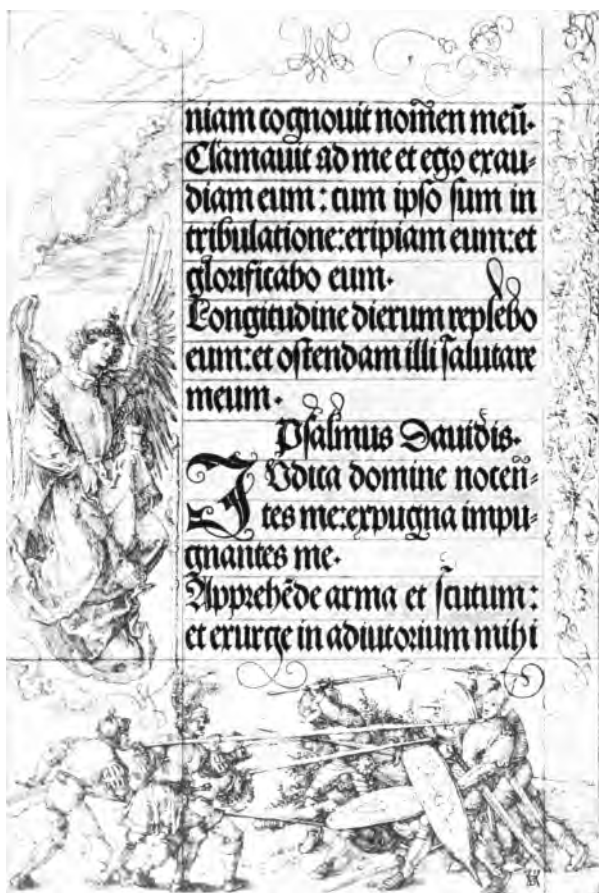 niam cognouit nomẽn meũ.
Clamauit ad me et ego exau⸗
diam eum : cum ipſo ſum in
tribulatione:eripiam eum:et
glorificabo eum.
Longitudine dierum replebo
eum:et oſtendam illi ſalutare
meum.
Pſalmus Dauidis.
IVdica domine nocen̄⸗
tes me:expugna impu⸗
gnantes me.
Apprehẽde arma et ſcutum :
et exurge in adiutorium mihi